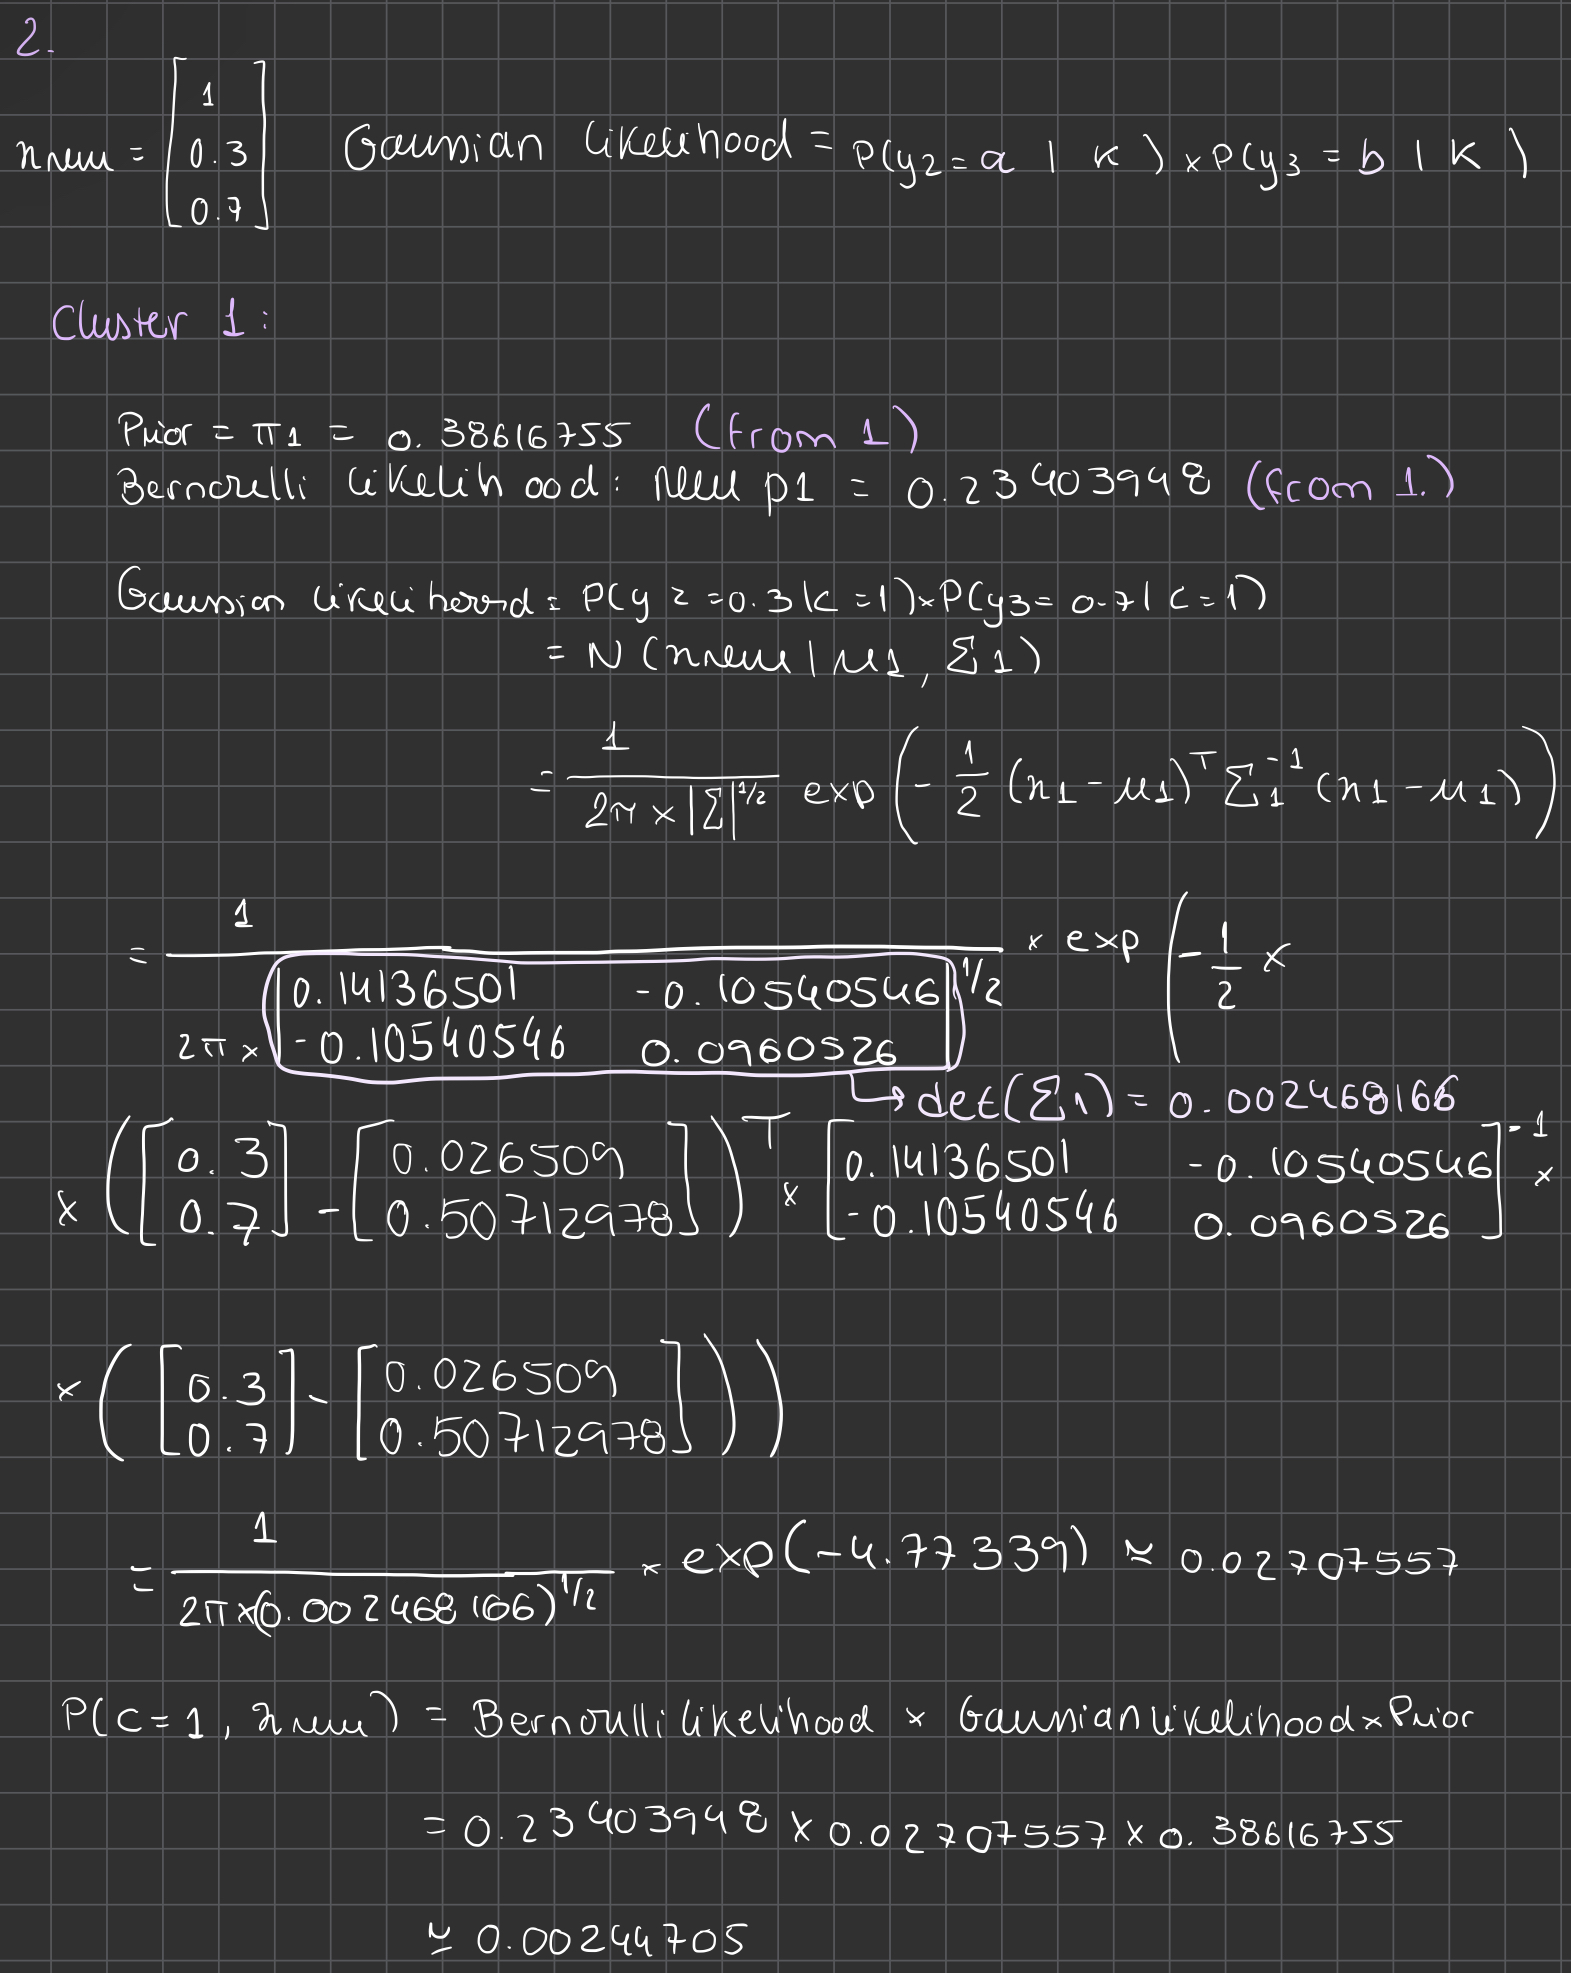 2.
xnew = [1 0.3 0.7] Gaussian likelihood = P(y2=a | K) × P(y3 = b | K)
Cluster 1:
Prior = π1 = 0.38616755 (from 1)
Bernoulli likelihood: new p1 = 0.23403948 (from 1.)
Gaussian likelihood = P(y2=0.3|C=1)×P(y3=0.7|C=1)
= N(xnew | μ1, Σ1)
= 1 / (2π × |Σ|^1/2) exp(-1/2 (x1-μ1)^T Σ1^-1 (x1-μ1))
= 1 / (2π × |0.14136501 -0.10540546 -0.10540546 0.0960526|^1/2) × exp(-1/2 ×
→ det(Σ1) = 0.002468166
× ([0.3 0.7] - [0.026509 0.50712978])^T × [0.14136501 -0.10540546 -0.10540546 0.0960526]^-1 ×
× ([0.3 0.7] - [0.026509 0.50712978]))
= 1 / (2π×(0.002468166)^1/2) × exp(-4.77339) ≃ 0.02707557
P(C=1, xnew) = Bernoulli likelihood × Gaussian likelihood × Prior
= 0.23403948 × 0.02707557 × 0.38616755
≃ 0.00244705